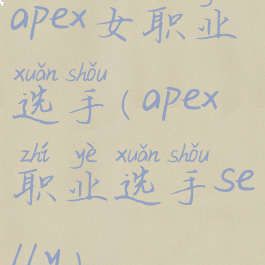 apex女职业
xuǎn shǒu
选手(apex
zhí yè xuǎn shǒu
职业选手se